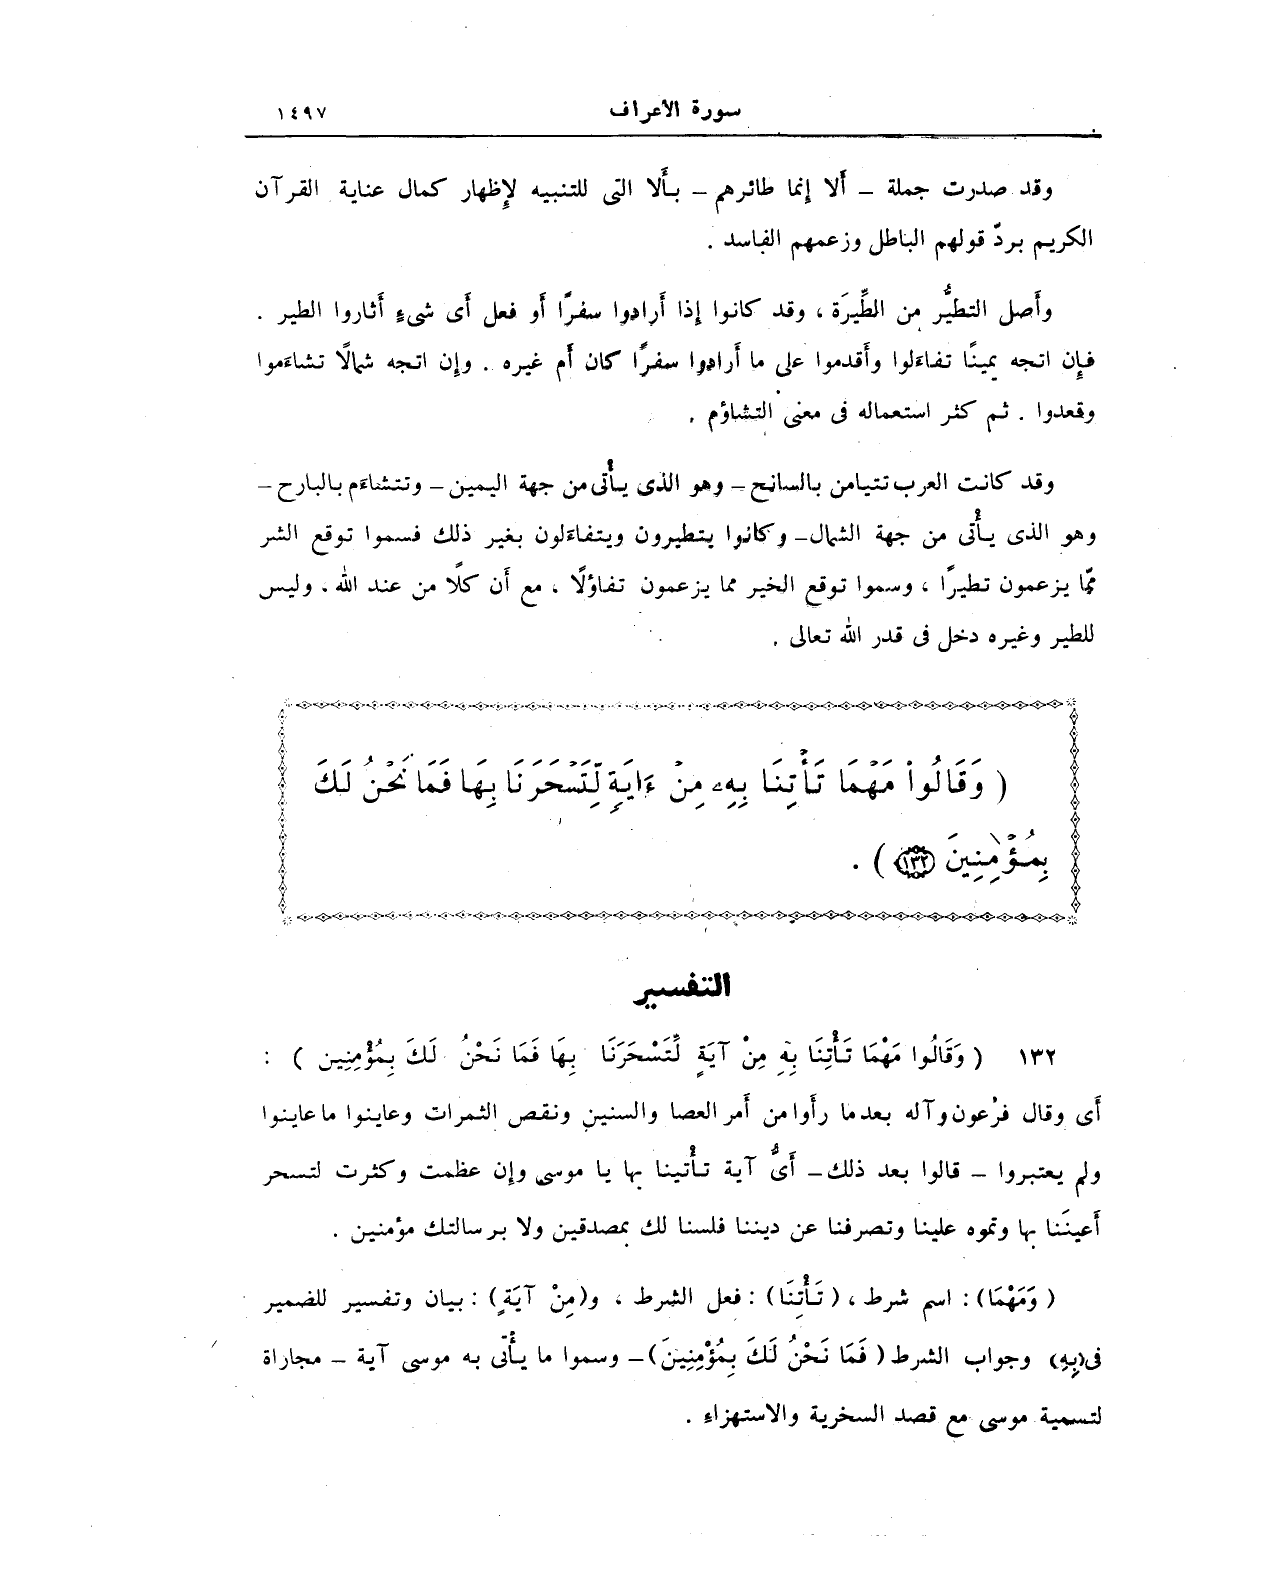 سورة الأعراف ١٤٩٧
وقد صدرت جملة – ألا إنما طائرهم – بألا التى للتنبيه لإظهار كمال عناية القرآن
الكريم بردّ قولهم الباطل وزعمهم الفاسد .
وأصل التطيُّر من الطِّيرَة ، وقد كانوا إذا أرادوا سفرًا أو فعل أى شىءٍ أثاروا الطير .
فإن اتجه يمينًا تفاءلوا وأقدموا على ما أرادوا سفرًا كان أم غيره . وإن اتجه شمالًا تشاءموا
وقعدوا . ثم كثر استعماله فى معنى التشاؤم .
وقد كانت العرب تتيامن بالسانح – وهو الذى يأْتى من جهة اليمين – وتتشاءم بالبارح –
وهو الذى يأْتى من جهة الشمال – وكانوا يتطيرون ويتفاءلون بغير ذلك فسموا توقع الشر
ممّا يزعمون تطيرًا ، وسموا توقع الخير مما يزعمون تفاؤلًا ، مع أن كلًا من عند الله . وليس
للطير وغيره دخل فى قدر الله تعالى .
( وَقَالُواْ مَهْمَا تَأْتِنَا بِهِۦ مِنْ ءَايَةٍ لِّتَسْحَرَنَا بِهَا فَمَا نَحْنُ لَكَ
بِمُؤْمِنِينَ ١٣٢ ) .
التفسير
١٣٢ ( وَقَالُوا مَهْمَا تَأْتِنَا بِهِ مِنْ آيَةٍ لِّتَسْحَرَنَا بِهَا فَمَا نَحْنُ لَكَ بِمُؤْمِنِين ) :
أى وقال فرْعون وآله بعد ما رأوا من أمر العصا والسنين ونقص الثمرات وعاينوا ما عاينوا
ولم يعتبروا – قالوا بعد ذلك – أىُّ آية تأْتينا بها يا موسى وإن عظمت وكثرت لتسحر
أعينَنا بها وتموه علينا وتصرفنا عن ديننا فلسنا لك بمصدقين ولا برسالتك مؤمنين .
( وَمَهْمَا ) : اسم شرط ، ( تَأْتِنَا ) : فعل الشرط ، و( مِنْ آيَةٍ ) : بيان وتفسير للضمير
فى (بِهِ) وجواب الشرط ( فَمَا نَحْنُ لَكَ بِمُؤْمِنِينَ ) – وسموا ما يأْتى به موسى آية – مجاراة
لتسمية موسى مع قصد السخرية والاستهزاء .